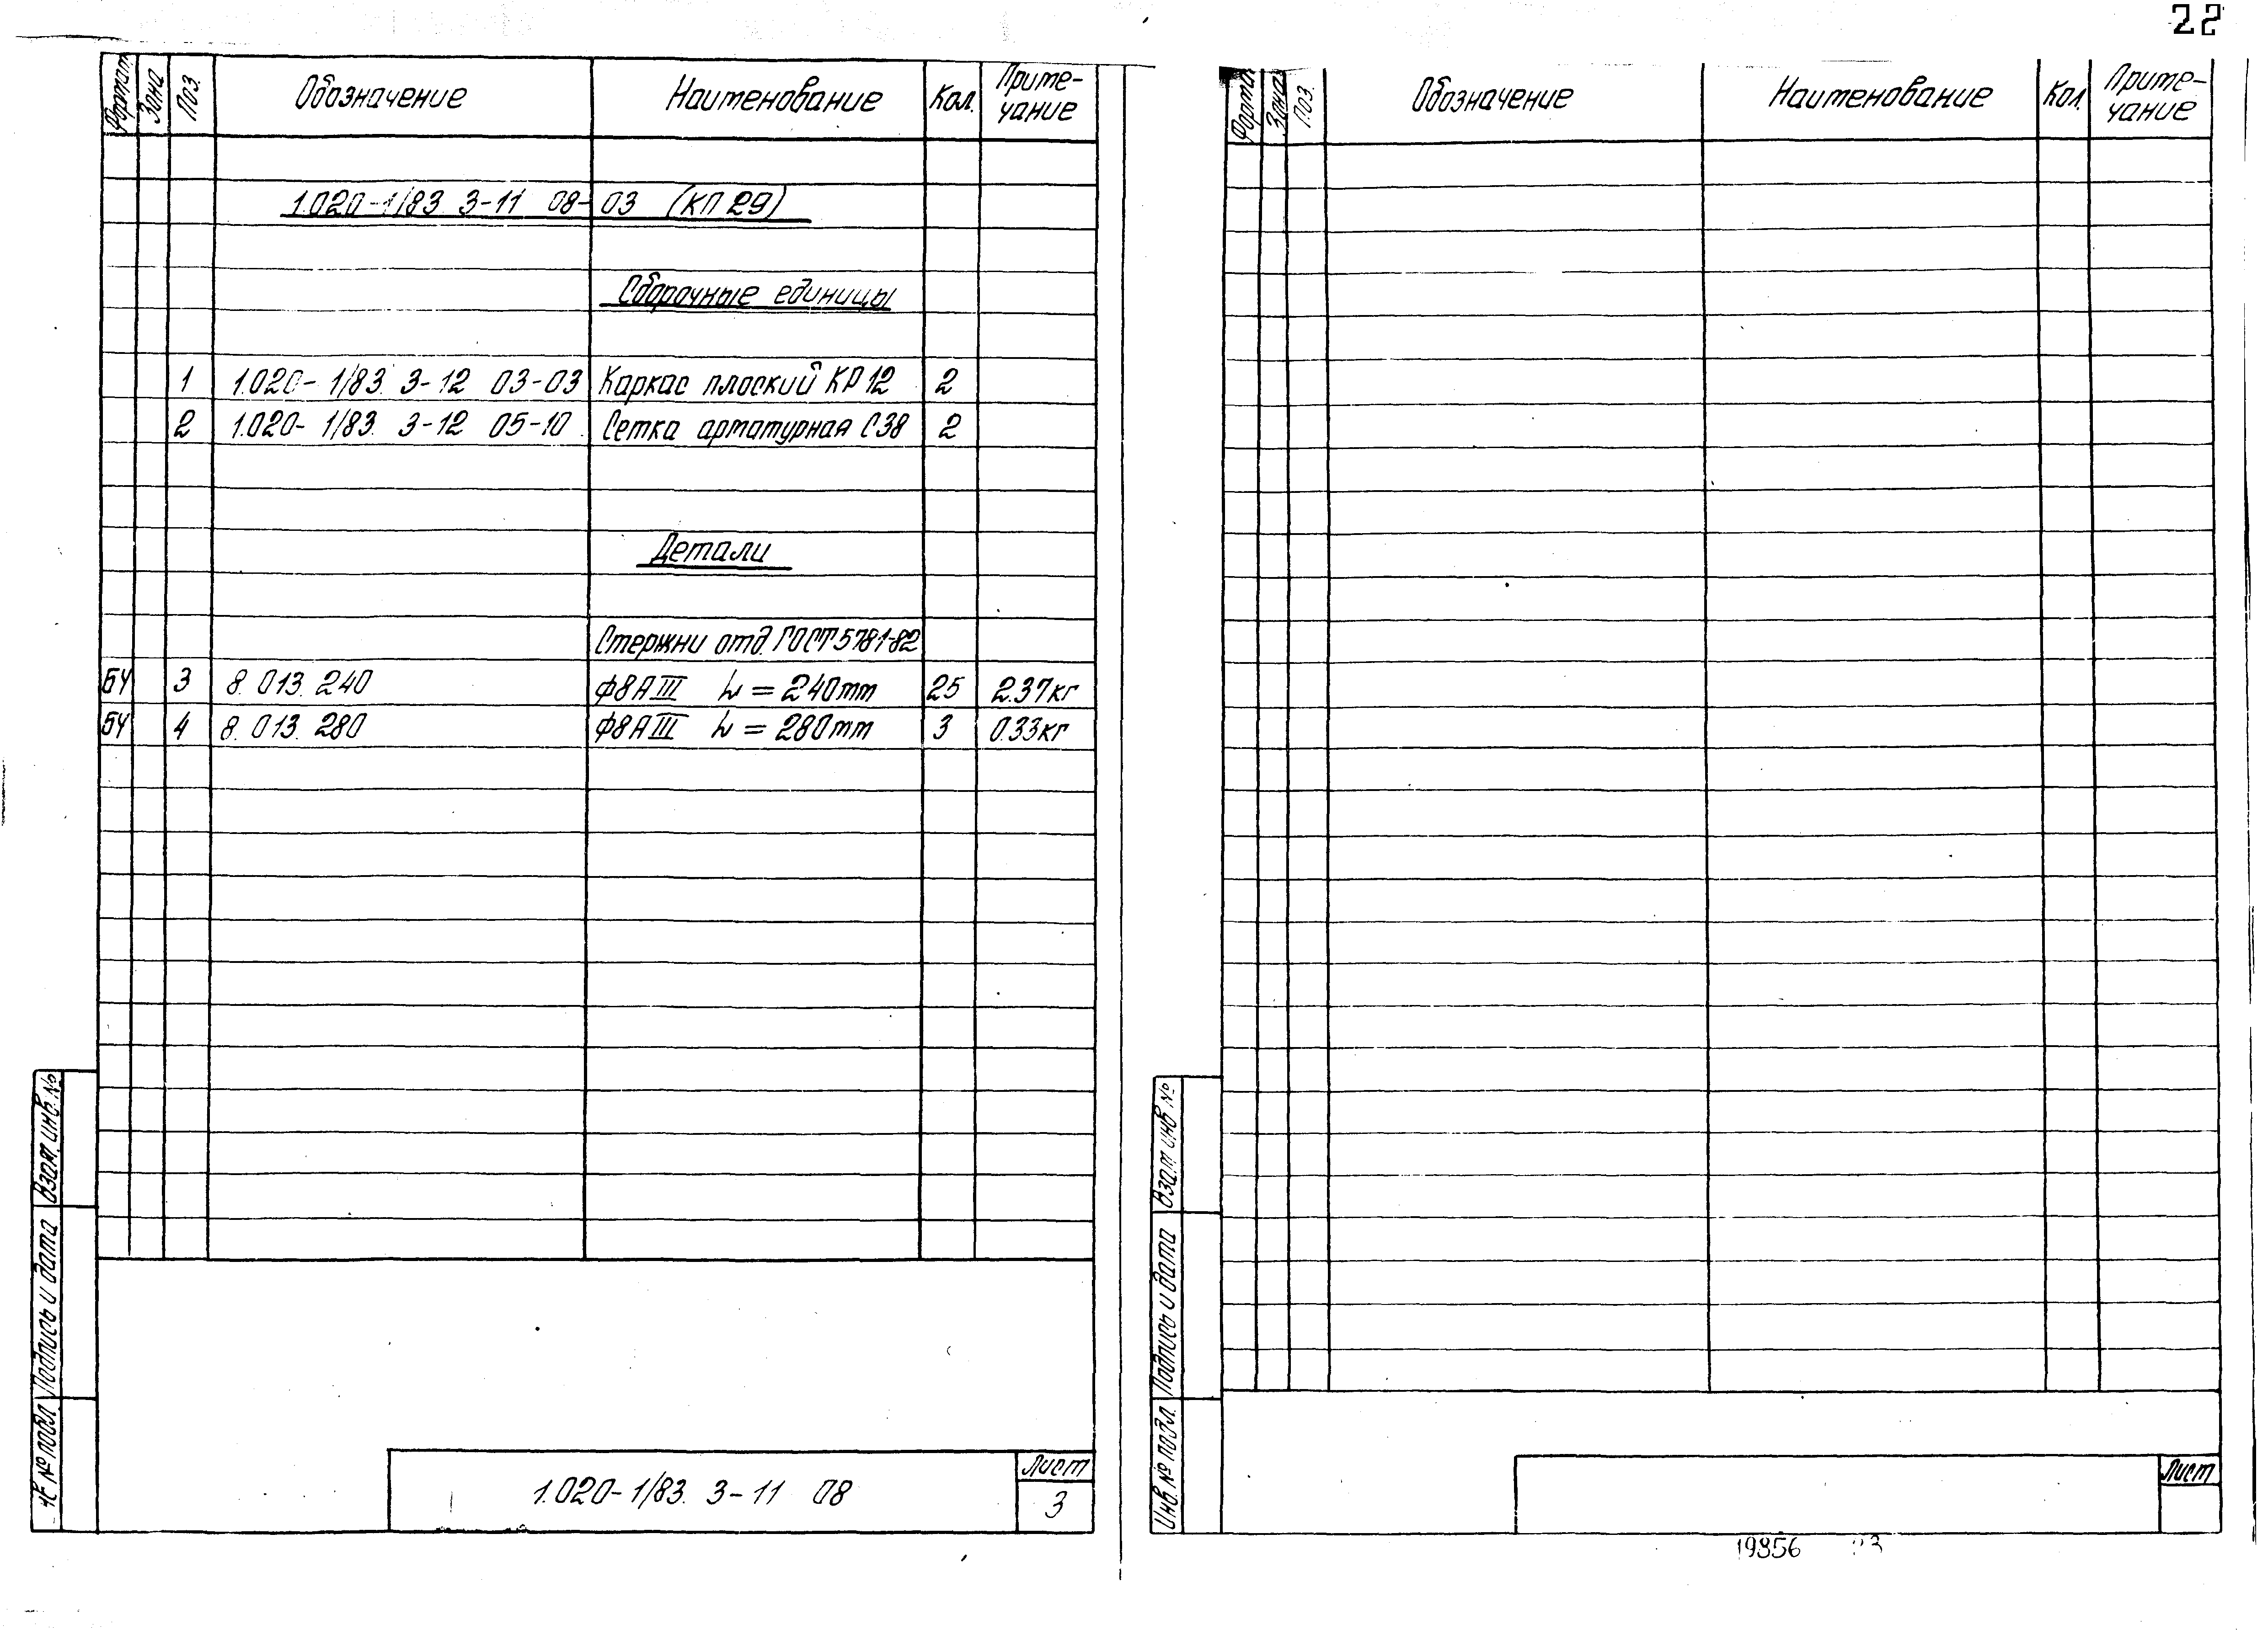 22
Формат Зона Поз. Обозначение Наименование Кол. Приме-
чание
1.020-1/83 3-11 08-03 (КП 29)
Сборочные единицы
1 1.020-1/83. 3-12 03-03 Каркас плоский КР 12 2
2 1.020-1/83. 3-12 05-10 Сетка арматурная С38 2
Детали
Стержни отд. ГОСТ 5781-82
БЧ 3 8. 013. 240 Ф8АIII L = 240mm 25 2.37кг
БЧ 4 8. 013. 280 Ф8АIII L = 280mm 3 0.33кг
Взам. инв. №
Подпись и дата
№ подл.
1.020-1/83. 3-11 08
Лист
3
Форма Зона Поз. Обозначение Наименование Кол. Приме-
чание
Взам инв №
Подпись и дата
Инв. № подл.
Лист
19856